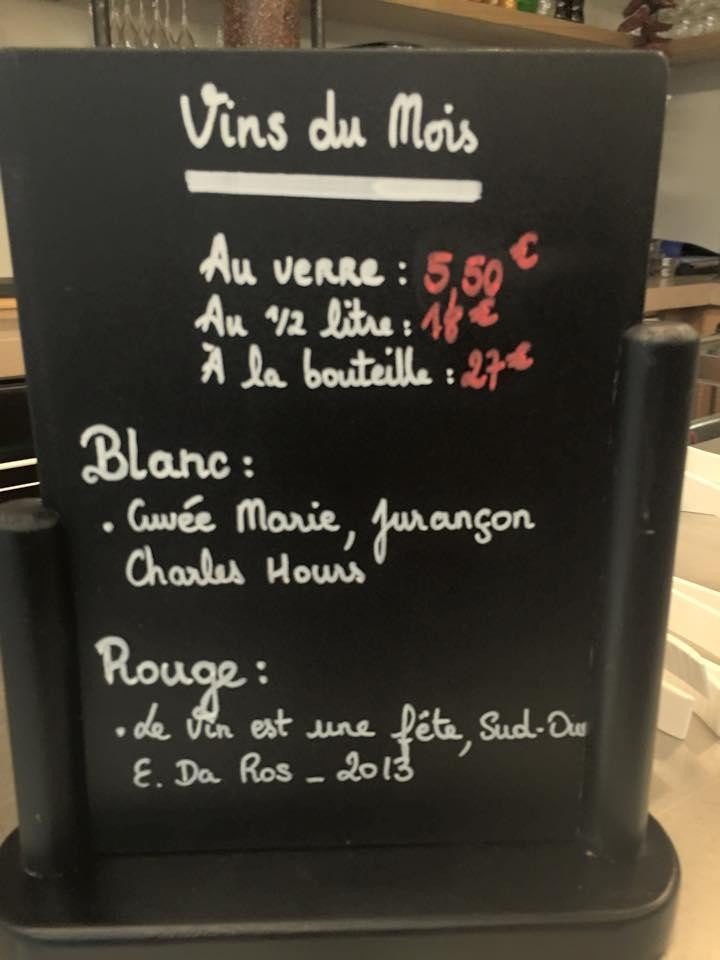 Vins du Mois
Au verre : 5,50 €
Au 1/2 litre : 18 €
À la bouteille : 27 €
Blanc :
. Cuvée Marie, Jurançon
Charles Hours
Rouge :
. Le vin est une fête, Sud-Ou
E. Da Ros _ 2013